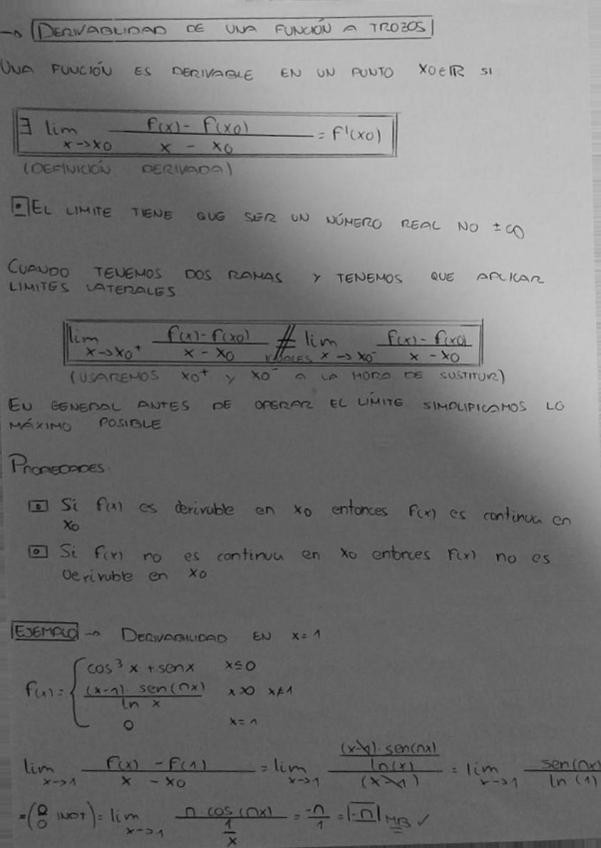 → DERIVABILIDAD DE UNA FUNCIÓN A TROZOS
UNA FUNCIÓN ES DERIVABLE EN UN PUNTO X0∈ℝ SI
∃ lim x→x0 (f(x) - f(x0)) / (x - x0) = f'(x0)
(DEFINICIÓN DERIVADA)
EL LIMITE TIENE QUE SER UN NÚMERO REAL NO ±∞
CUANDO TENEMOS DOS RAMAS Y TENEMOS QUE APLICAR
LIMITES LATERALES
lim x→x0⁺ (f(x) - f(x0)) / (x - x0) ≠ lim x→x0⁻ (f(x) - f(x0)) / (x - x0)
(USAREMOS x0⁺ Y x0⁻ A LA HORA DE SUSTITUIR)
EN GENERAL ANTES DE OPERAR EL LÍMITE SIMPLIFICAMOS LO
MÁXIMO POSIBLE
PROPIEDADES
Si f(x) es derivable en x0 entonces f(x) es continua en
x0
Si f(x) no es continua en x0 entonces f(x) no es
derivable en x0
EJEMPLO → DERIVABILIDAD EN x=1
cos³x + senx x≤0
f(x) = { ((x-1)·sen(πx)) / (ln x) x>0 x≠1
0 x=1
lim x→1 (f(x) - f(1)) / (x - x0) = lim x→1 (((x-1)·sen(πx)) / ln(x)) / (x-1) = lim x→1 sen(πx) / ln(1)
= (0/0 INDT) = lim x→1 (π cos(πx)) / (1/x) = -π/1 = |-π| ✓